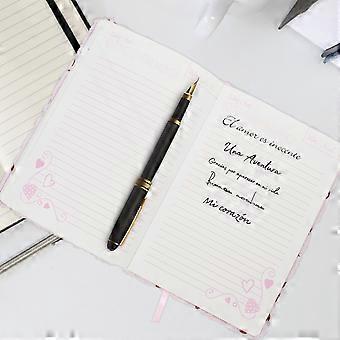 El amor es inocente
Una Aventura
Gracias por aparecer en mi vida
Mi corazón